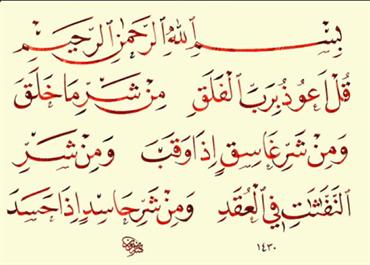 بِسْمِ اللهِ الرَّحْمٰنِ الرَّحِيمِ
قُلْ اَعُوذُ بِرَبِّ الْفَلَقِ مِنْ شَرِّ مَا خَلَقَ
وَمِنْ شَرِّ غَاسِقٍ اِذَا وَقَبَ وَمِنْ شَرِّ
النَّفّٰثٰتِ فِي الْعُقَدِ وَمِنْ شَرِّ حَاسِدٍ اِذَا حَسَدَ
١٤٣٠